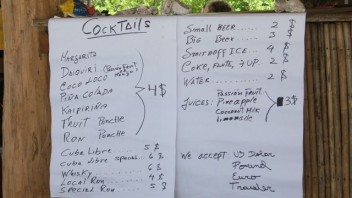 Cocktails
Margarita
Daiquiri (Passion Fruit, Mango)
Coco Loco
Piña Colada
Kaipiriña
Fruit Punche
Ron Punche
4 $
Cuba Libre = $
Cuba Libre 6 $
Whisky 6 $
Local Ron 4 $
Special Ron = $
Small Beer 2 $
Big Beer 3 $
Smirnoff Ice 4 $
Coke, Fanta, 7 up 2 $
Water 2 $
Juices: Passion Fruit
Pineapple
Coconut Milk
Limonade
3 $
We accept: US Dollar
Pound
Euro
Traveler